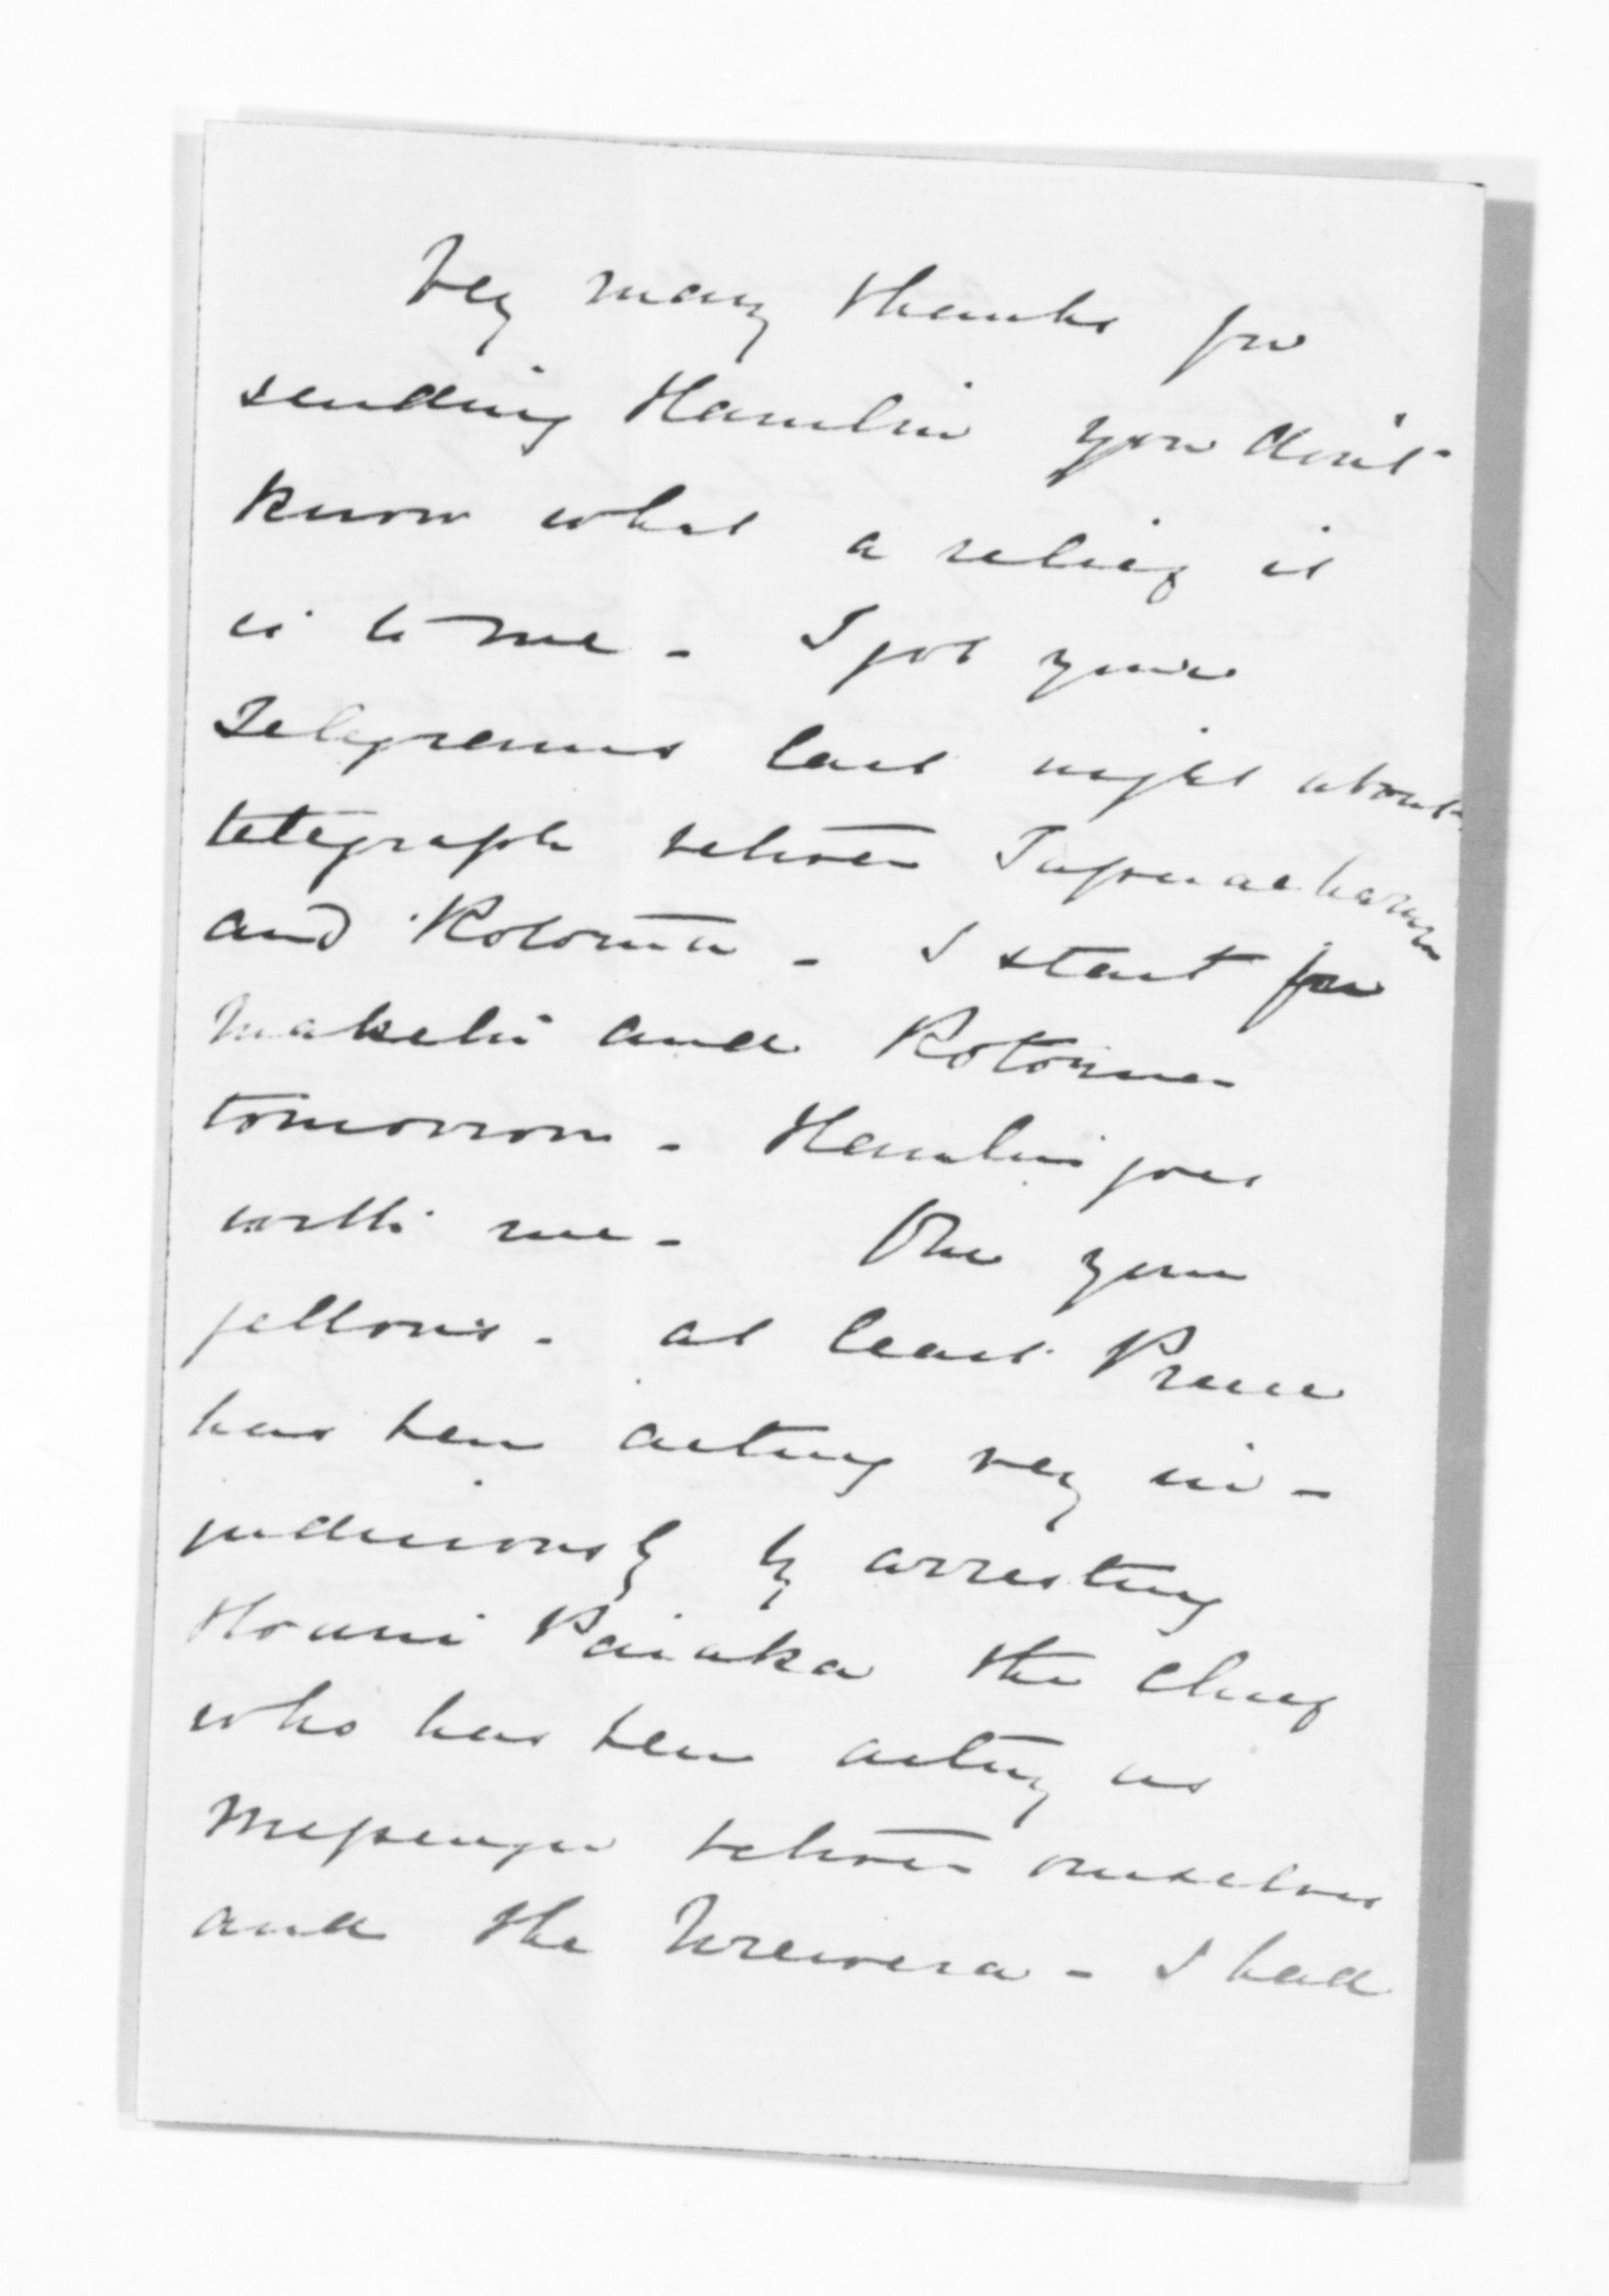 Very many thanks for
sending Hamlin you don't
know what a relief it
is to me - I got your
Telegrams last night about
telegraph between Tapuaeharuru
and Rotorua - I start for
Maketu and Rotorua
tomorrow - Hamlin goes
with me - Our young
fellows - at least Preece
has been acting very in-
judiciously by arresting
Hounii Paiaka the chief
who has been acting as
Messenger between ourselves
and the Urewera - I had